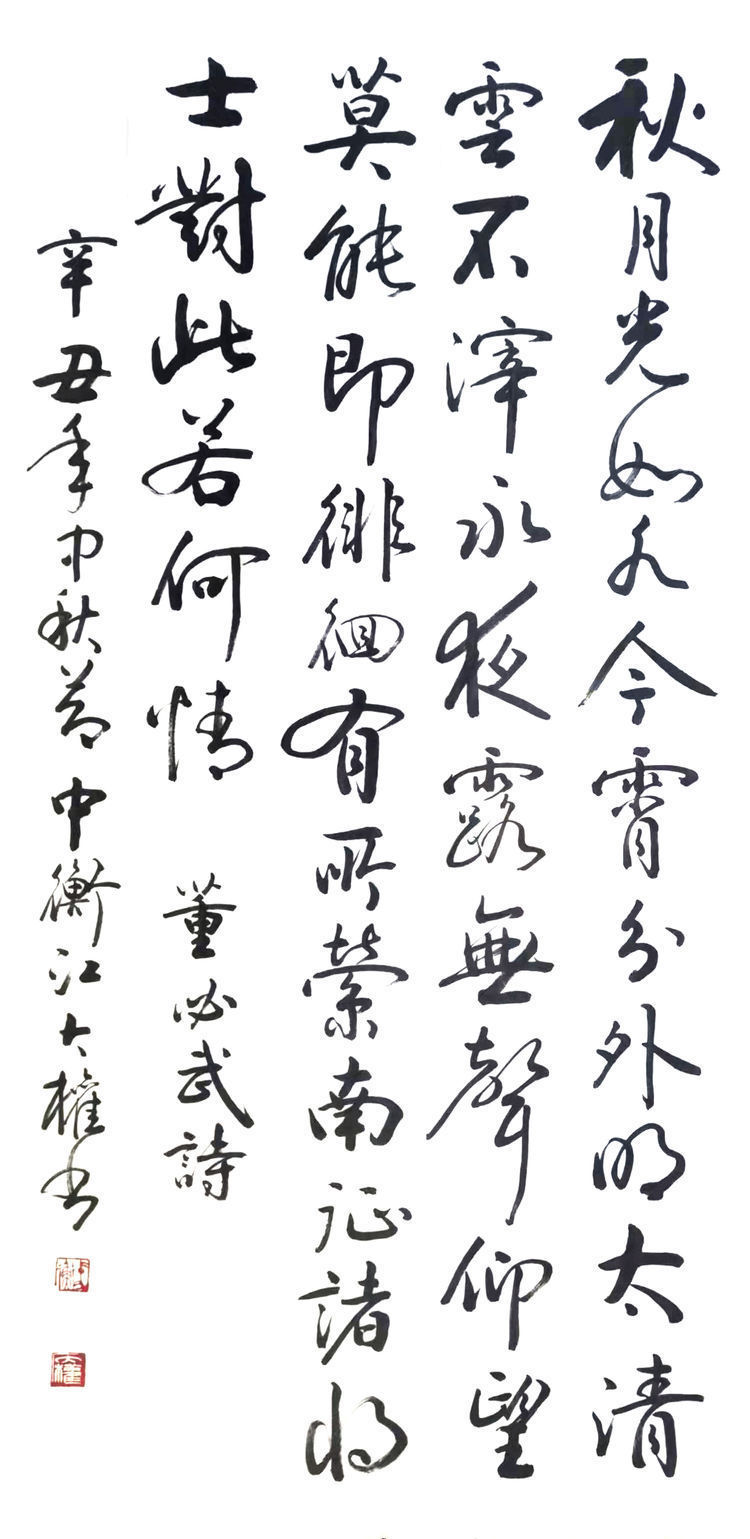 秋月光如水今霄分外明太清
雲不滓永夜露無聲仰望
莫能即徘徊有所縈南征諸将
士對此若何情 董必武詩
辛丑年中秋节 中衡江大權书